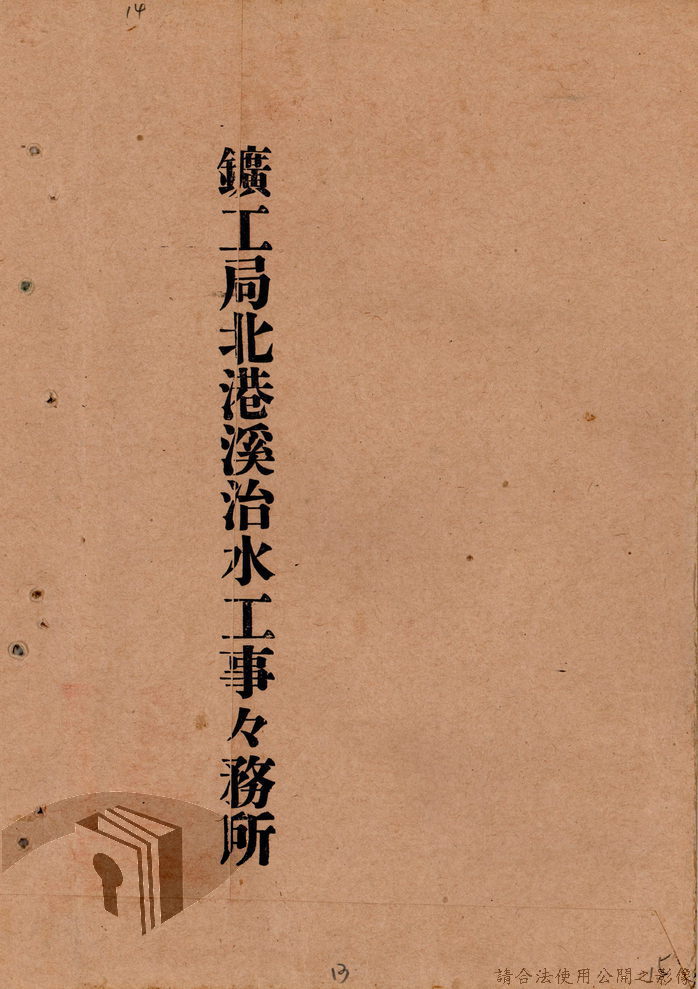 14
鑛工局北港溪治水工事々務所
13
15
請合法使用公開之影像